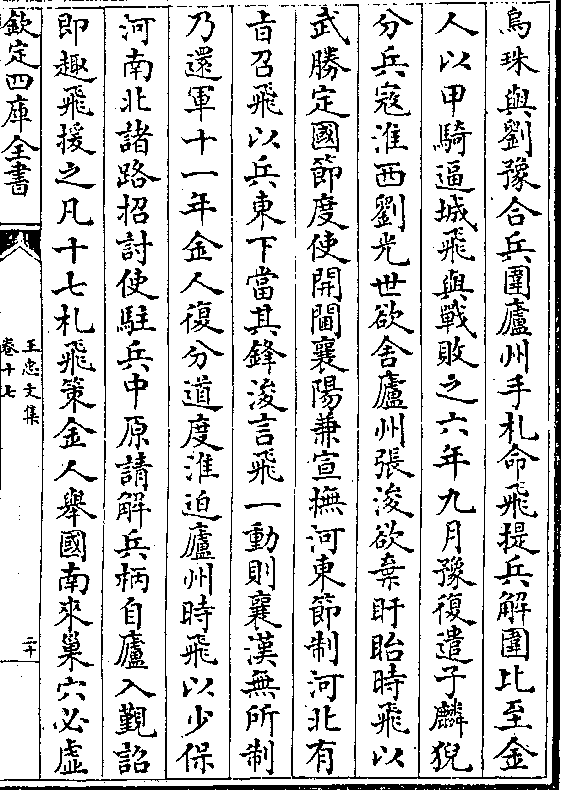 烏珠與劉豫合兵圍廬州手札命飛提兵解圍比至金
人以甲騎逼城飛與戰敗之六年九月豫復遣子麟猊
分兵寇淮西劉光世欲舍廬州張浚欲棄盱眙時飛以
武勝定國節度使開閫襄陽兼宣撫河東節制河北有
㫖召飛以兵東下當其鋒浚言飛一動則襄漢無所制
乃還軍十一年金人復分道度淮迫廬州時飛以少保
河南北諸路招討使駐兵中原請解兵柄自廬入覲詔
即趣飛援之凡十七札飛策金人舉國南來巢穴必虚
欽定四庫全書
王忠文集
卷十七
二十